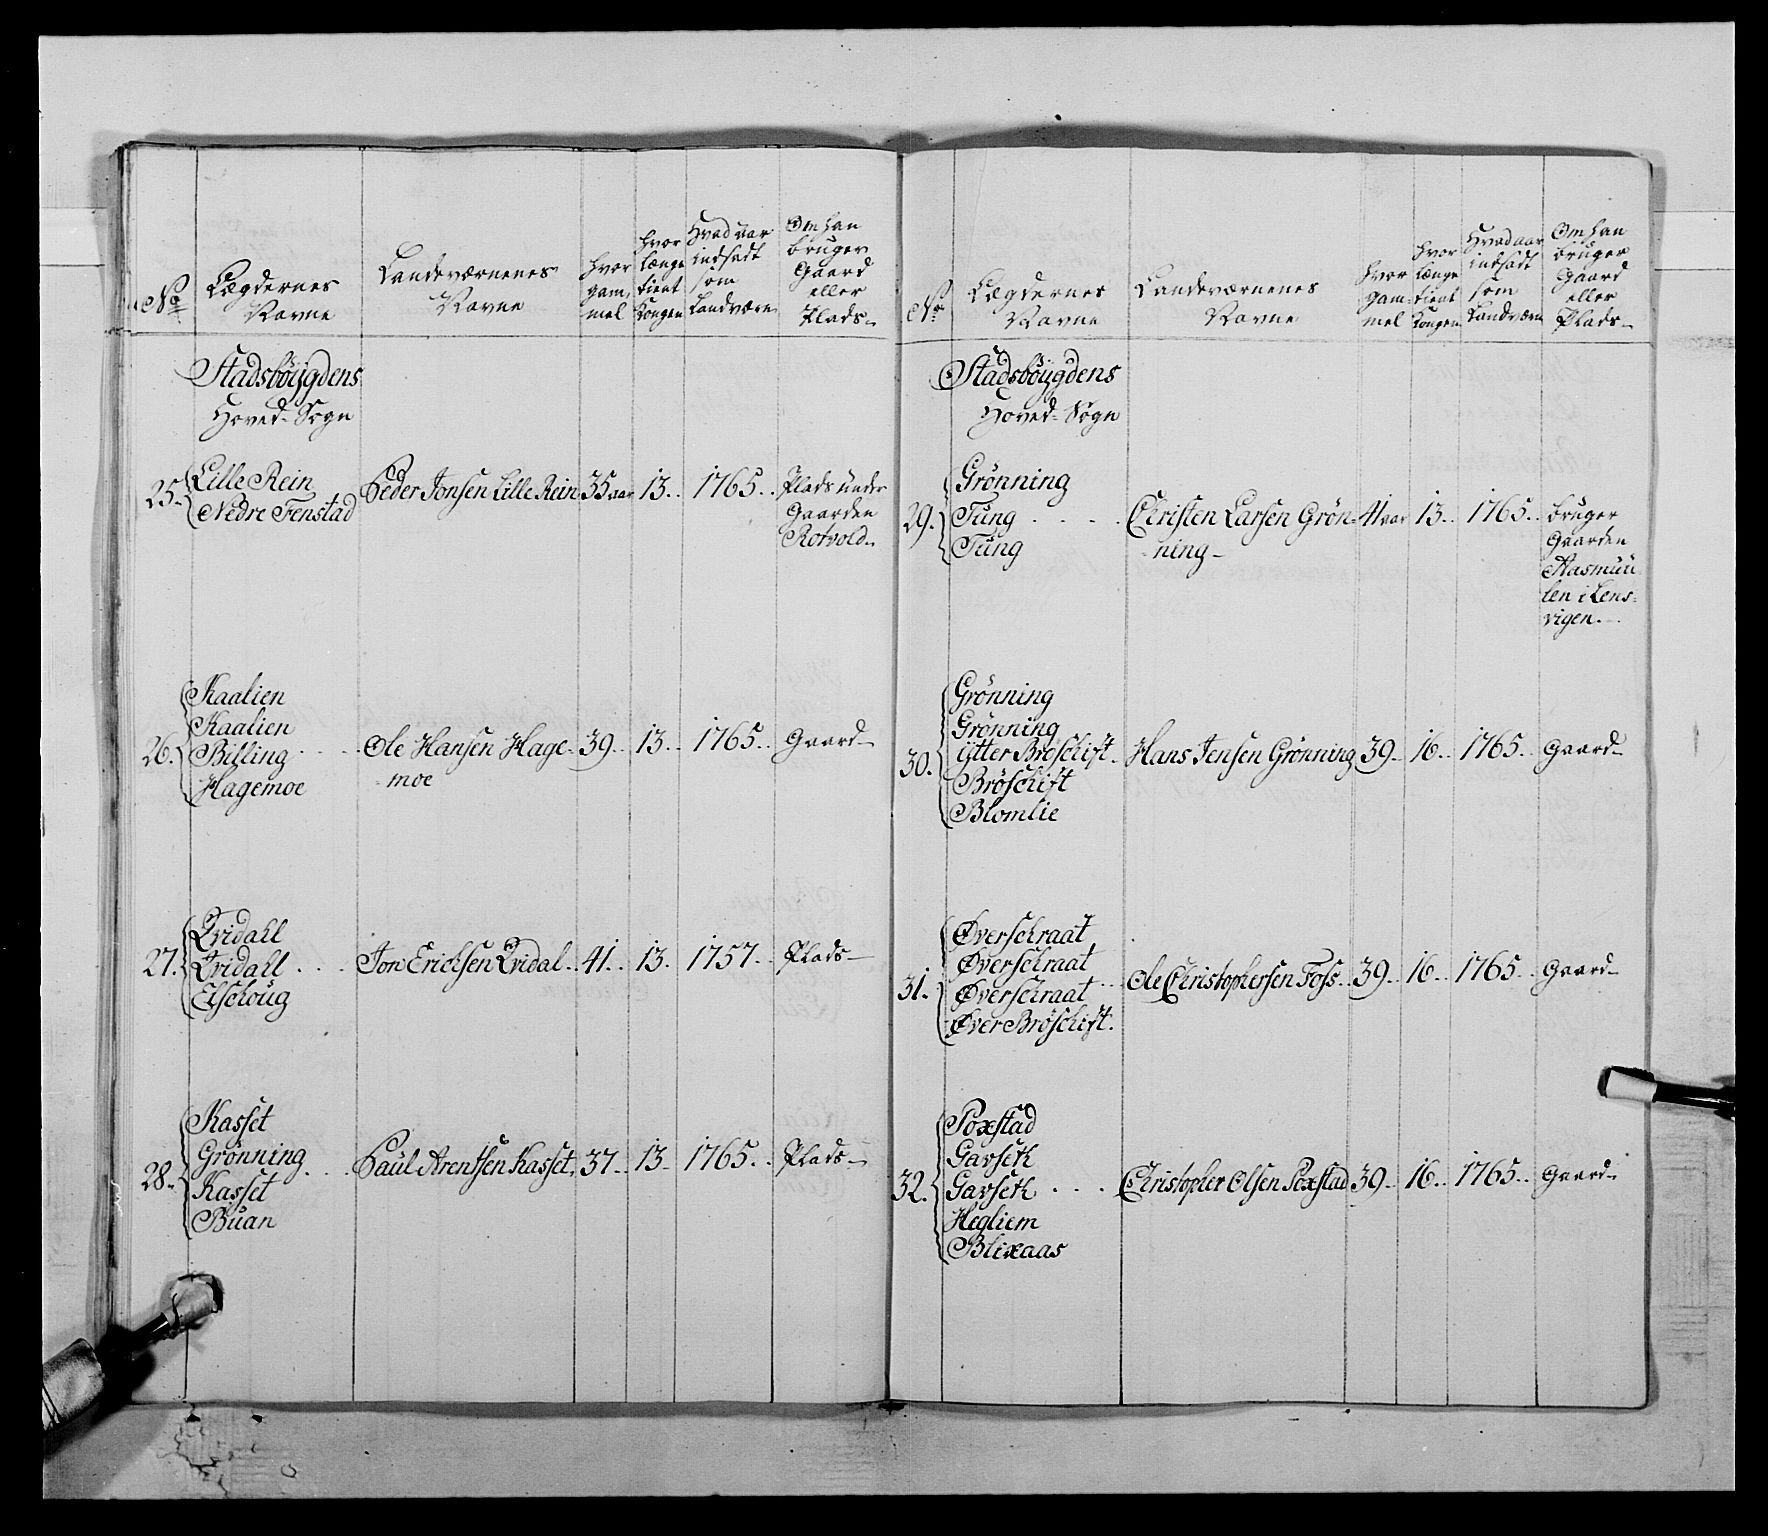 No
Lægdernes
Navne
Landeværnenes
Navne
hvor
gam-
mel
hvor
længe
tient
Kongen
Hvad aar
indsadt
som
Landværn
Om han
bruger
Gaard
eller
Plads-
Stadsbøijgdens
Hoved-Sogn
25.
Lille Rein
Nedre Fenstad
Peder Jonsen Lille Rein 35 aar 13.. 1765..
Plads under
Gaarden
Rotvold-
26.
Kaalien
Kaalien
Billing
Hagemoe
Ole Hansen Hage-
moe
39.. 13.. 1765.. Gaard-
27.
Qvidahl
Qvidahl
Elschoug
Jon Erichsen Qvidal.. 41.. 13. 1757.. Plads-
28.
Kasset
Grønning
Kasset
Buan
Paul Arentsen Kasset, 37.. 13.. 1765.. Plads-
No
Lægdernes
Navne
Landeværnenes
Navne
hvor
gam-
mel
hvor
længe
tient
Kongen
Hvad aar
indsadt
som
Landværn
Om han
bruger
Gaard
eller
Plads-
Stadsbøijgdens
Hoved-Sogn
29.
Grønning
Tung
Tung
Christen Larsen Grøn-
ning-
41 aar 13.. 1765..
bruger
Gaarden
Aasmuu
len i Lens-
vigen.
30.
Grønning
Grønning
Ytter Brøschift
Brøschift
Blomlie
Hans Jensen Grønning 39.. 16.. 1765.. Gaard-
31.
Øverschraat
Øverschraat
Øverschraat
Øver Brøschift.
Ole Christophersen Foss.. 39.. 16.. 1765.. Gaard-
32.
Poxstad
Gavseth
Gavseth
Hegliem
Blixaas
Christopher Olsen Poxstad 39.. 16.. 1765.. Gaard-